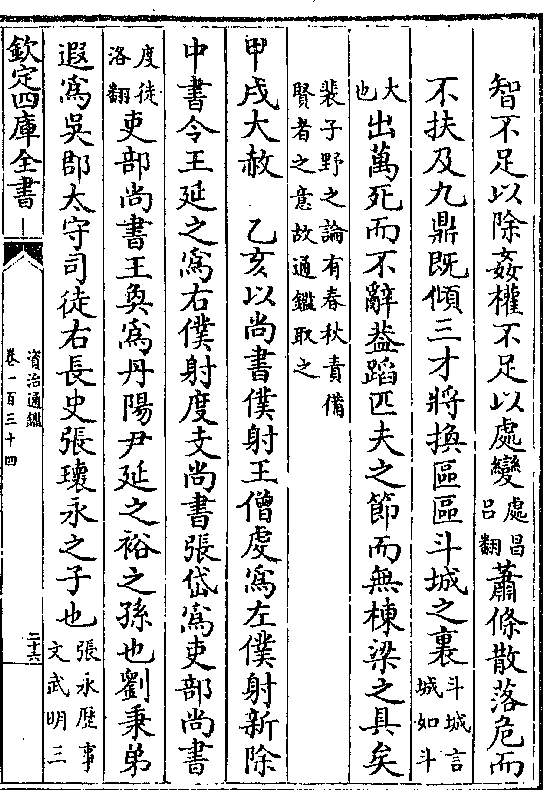 智不足以除姦權不足以處變處昌呂翻蕭條散落危而
不扶及九鼎既傾三才將換區區斗城之裏斗城言城如斗
大也出萬死而不辭蓋蹈匹夫之節而無棟梁之具矣
裴子野之論有春秋責備賢者之意故通鑑取之
甲戌大赦 乙亥以尚書僕射王僧虔為左僕射新除
中書令王延之為右僕射度支尚書張岱為吏部尚書
度徒洛翻吏部尚書王奐為丹陽尹延之裕之孫也劉秉弟
遐為吳郡太守司徒右長史張瓌永之子也張永歷事文武明三
欽定四庫全書
資治通鑑
卷一百三十四
二十六